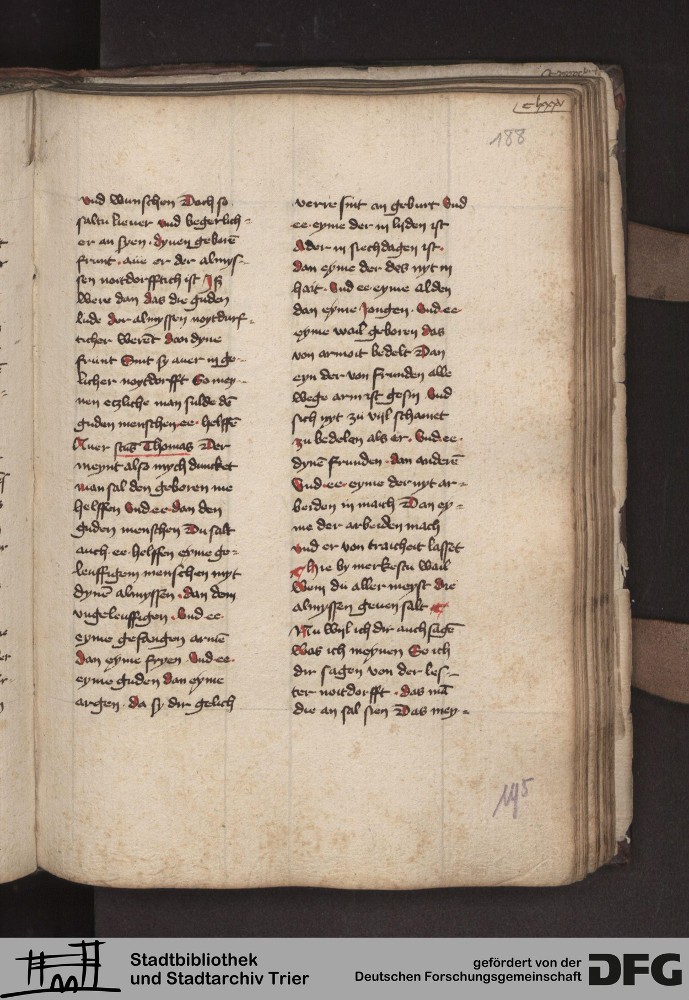 clxxxv
188
vnd wunschen Doch so
saltu lieuer vnd begerlich=
er an syen. dynen geborē
frunt. aue er der almys=
sen noitdorfftich ist Jß
Were dan das die guden
lude der almyssen noytdurf=
ticher werēt dan dyne
frunt Sint sy auer in ge=
licher noytdorfft So mey=
nen etzliche man sulde dē
guden menschen ee helffē
Auer sctūs Thomas Der
meynt also mych duncket
man sal den geboren me
helffen Vnd ee dan den
guden menschen Du salt
auch ee helffen eyme ge=
leuffigem menschen myt
dynē almyssen. dan dem
vngeleuffigen. Vnd ee
eyme gefangen armē
dan eyme fryen Vnd ee.
eyme guden dan eyme
argen. da sy dir gelich
verre sint an geburt Vnd
ee eyme der in lijden ist
Ader in siechdagen ist.
dan eyme der des nyt in
hait. Vnd ee eyme alden
dan eyme jongen. Vnd ee
eyme wail geboren das
von armoit bedelt Dan
eyn der von frunden alle
wege arm ist gesin Vnd
sich nyt zu vijl schamet
zu bedelen als er. Vnd ee.
dynē frunden. dan anderē
Vnd ee eyme der nyt ar=
beiden in mach Dan ey=
me der arbeiden mach
vnd er von traicheit lasset
Hie by merkestu wail
Wem du aller meyst die
almyssen geuen salt
Nu wijl ich dir auch sagē
Was ich meynen So ich
dir sagen von der les=
ter noitdorfft. das mā
die an sal sien Das mey=
195
Stadtbibliothek
und Stadtarchiv Trier
gefördert von der
Deutschen Forschungsgemeinschaft
DFG